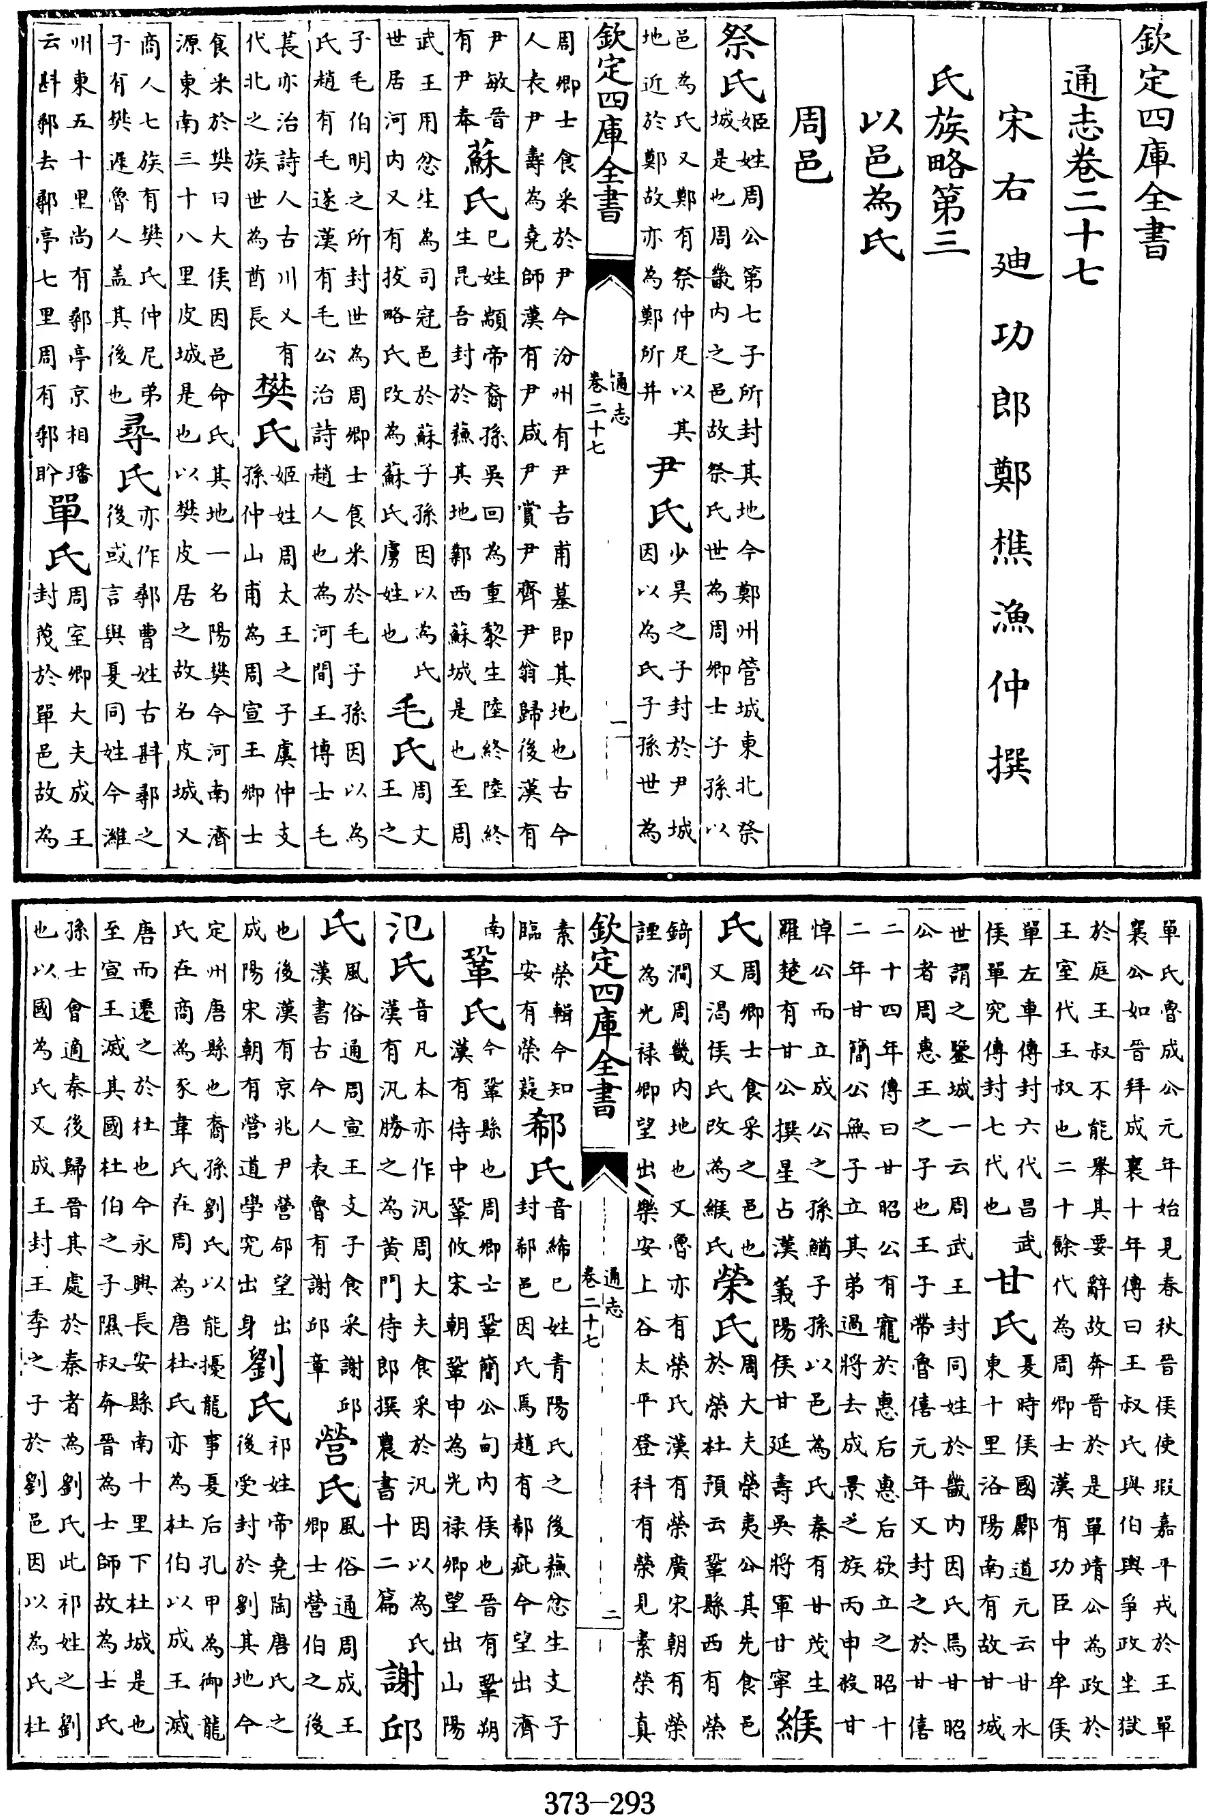 欽定四庫全書
通志卷二十七
宋右廸功郎鄭樵漁仲撰
氏族略第三
以邑為氏
周邑
祭氏姬姓周公第七子所封其地今鄭州管城東北祭城是也周畿内之邑故祭氏世為周卿士子孫以
邑為氏又鄭有祭仲足以其地近於鄭故亦為鄭所并尹氏少昊之子封於尹城因以為氏子孫世為
欽定四庫全書 通志卷二十七 一
周卿士食采於尹今汾州有尹吉甫墓即其地也古今人表尹壽為堯師漢有尹咸尹賞尹齊尹翁歸後漢有
尹敏晉有尹奉蘇氏巳姓顓帝裔孫吳回為重黎生陸終陸終生昆吾封於蘓其地鄴西蘇城是也至周
武王用忿生為司冦邑於蘇子孫因以為氏世居河内又有拔略氏改為蘇氏虜姓也毛氏周文王之
子毛伯明之所封世為周卿士食采於毛子孫因以為氏趙有毛遂漢有毛公治詩趙人也為河間王博士毛
萇亦治詩人古川又有代北之族世為酋長樊氏姬姓周太王之子虞仲支孫仲山甫為周宣王卿士
食采於樊曰大侯因邑命氏其地一名陽樊今河南濟源東南三十八里皮城是也以樊皮居之故名皮城又
商人七族有樊氏仲尼弟子有樊遲魯人盖其後也尋氏亦作鄩曹姓古斟鄩之後或言與夏同姓今濰
州東五十里尚有鄩亭京相璠云斟鄩去鄩亭七里周有鄩肸單氏周室卿大夫成王封蔑於單邑故為
單氏魯成公元年始見春秋晉侯使瑕嘉平戎於王單襄公如晉拜成襄十年傳曰王叔氏與伯輿爭政坐獄
於庭王叔不能舉其要辭故奔晉於是單靖公為政於王室代王叔也二十餘代為周卿士漢有功臣中牟侯
單左車傳封六代昌武侯單究傳封七代也甘氏夏時侯國酈道元云甘水東十里洛陽南有故甘城
世謂之鑒城一云周武王封同姓於畿内因氏焉甘昭公者周惠王之子也王子帶魯僖元年又封之於甘僖
二十四年傳曰甘昭公有寵於惠后惠后欲立之昭十二年甘簡公無子立其弟過將去成景之族丙申殺甘
悼公而立成公之孫鰌子孫以邑為氏秦有甘茂生羅楚有甘公撰星占漢義陽侯甘延壽吳將軍甘寧緱
氏周卿士食采之邑也又渴侯氏改為緱氏榮氏周大夫榮夷公其先食邑於榮杜預云鞏縣西有榮
錡澗周畿内地也又魯亦有榮氏漢有榮廣宋朝有榮諲為光禄卿望出樂安上谷太平登科有榮見素榮真
欽定四庫全書 通志卷二十七 二
素榮輯今知臨安有榮薿郗氏音絺巳姓青陽氏之後蘓忿生支子封郗邑因氏焉趙有郗疵今望出濟
南鞏氏今鞏縣也周卿士鞏簡公甸内侯也晉有鞏朔漢有侍中鞏攸宋朝鞏申為光禄卿望出山陽
氾氏音凡本亦作汎周大夫食采於汎因以為氏漢有汎勝之為黄門侍郎撰農書十二篇謝邱
氏風俗通周宣王支子食采謝邱漢書古今人表魯有謝邱章營氏風俗通周成王卿士營伯之後
也後漢有京兆尹營郃望出成陽宋朝有營道學究出身劉氏祁姓帝堯陶唐氏之後受封於劉其地今
定州唐縣也裔孫劉氏以能擾龍事夏后孔甲為御龍氏在商為豕韋氏在周為唐杜氏亦為杜伯以成王滅
唐而遷之於杜也今永興長安縣南十里下杜城是也至宣王滅其國杜伯之子隰叔奔晉為士師故為士氏
孫士會適秦後歸晉其處於秦者為劉氏此祁姓之劉也以國為氏又成王封王季之子於劉邑因以為氏杜
373-293